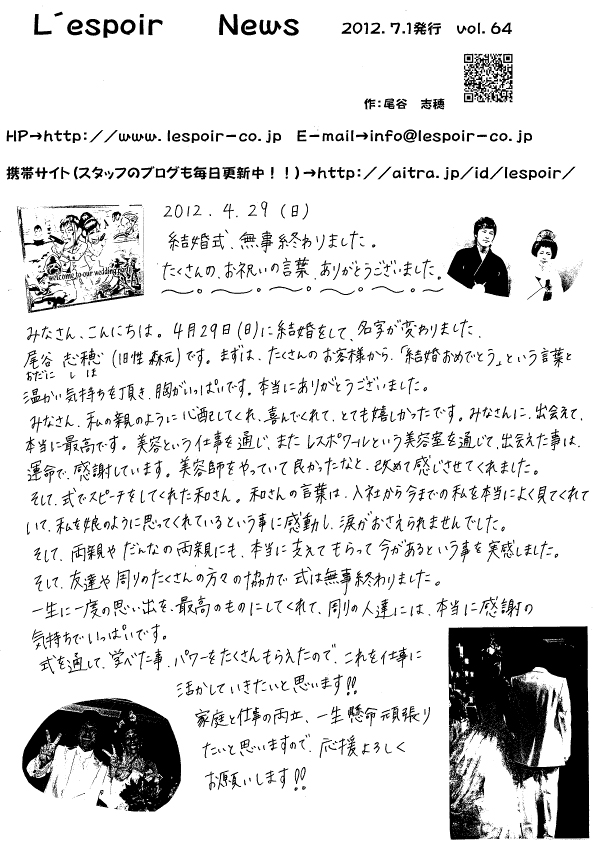 L´espoir News 2012.7.1発行 vol.64
作:尾谷 志穂
HP→http://www.lespoir-co.jp E-mail→info@lespoir-co.jp
携帯サイト(スタッフのブログも毎日更新中!!)→http://aitra.jp/id/lespoir/
2012.4.29(日)
結婚式、無事終わりました。
たくさんの、お祝いの言葉、ありがとうございました。
welcome to our wedding
みなさん、こんにちは。4月29日(日)に結婚をして、名字が変わりました、
尾谷 志穂(旧性 森元)です。まずは、たくさんのお客様から、「結婚おめでとう」という言葉と
おだに しほ
温かい気持ちを頂き、胸がいっぱいです。本当にありがとうございました。
みなさん、私の親のように心配してくれ、喜んでくれて、とても嬉しかったです。みなさんに、出会えて、
本当に最高です。美容という仕事を通じ、また レスポワールという美容室を通じて、出会えた事は、
運命で、感謝しています。美容師をやっていて良かったなと、改めて感じさせてくれました。
そして、式でスピーチをしてくれた和さん。和さんの言葉は、入社から今までの私を本当によく見てくれて
いて、私を娘のように思ってくれているという事に感動し、涙がおさえられませんでした。
そして、両親やだんなの両親にも、本当に支えてもらって今があるという事を実感しました。
そして、友達や周りのたくさんの方々の協力で式は無事終わりました。
一生に一度の思い出を、最高のものにしてくれて、周りの人達には、本当に感謝の
気持ちでいっぱいです。
式を通して、学べた事、パワーをたくさんもらえたので、これを仕事に
活かしていきたいと思います!!
家庭と仕事の両立、一生懸命頑張り
たいと思いますので、応援よろしく
お願いします!!